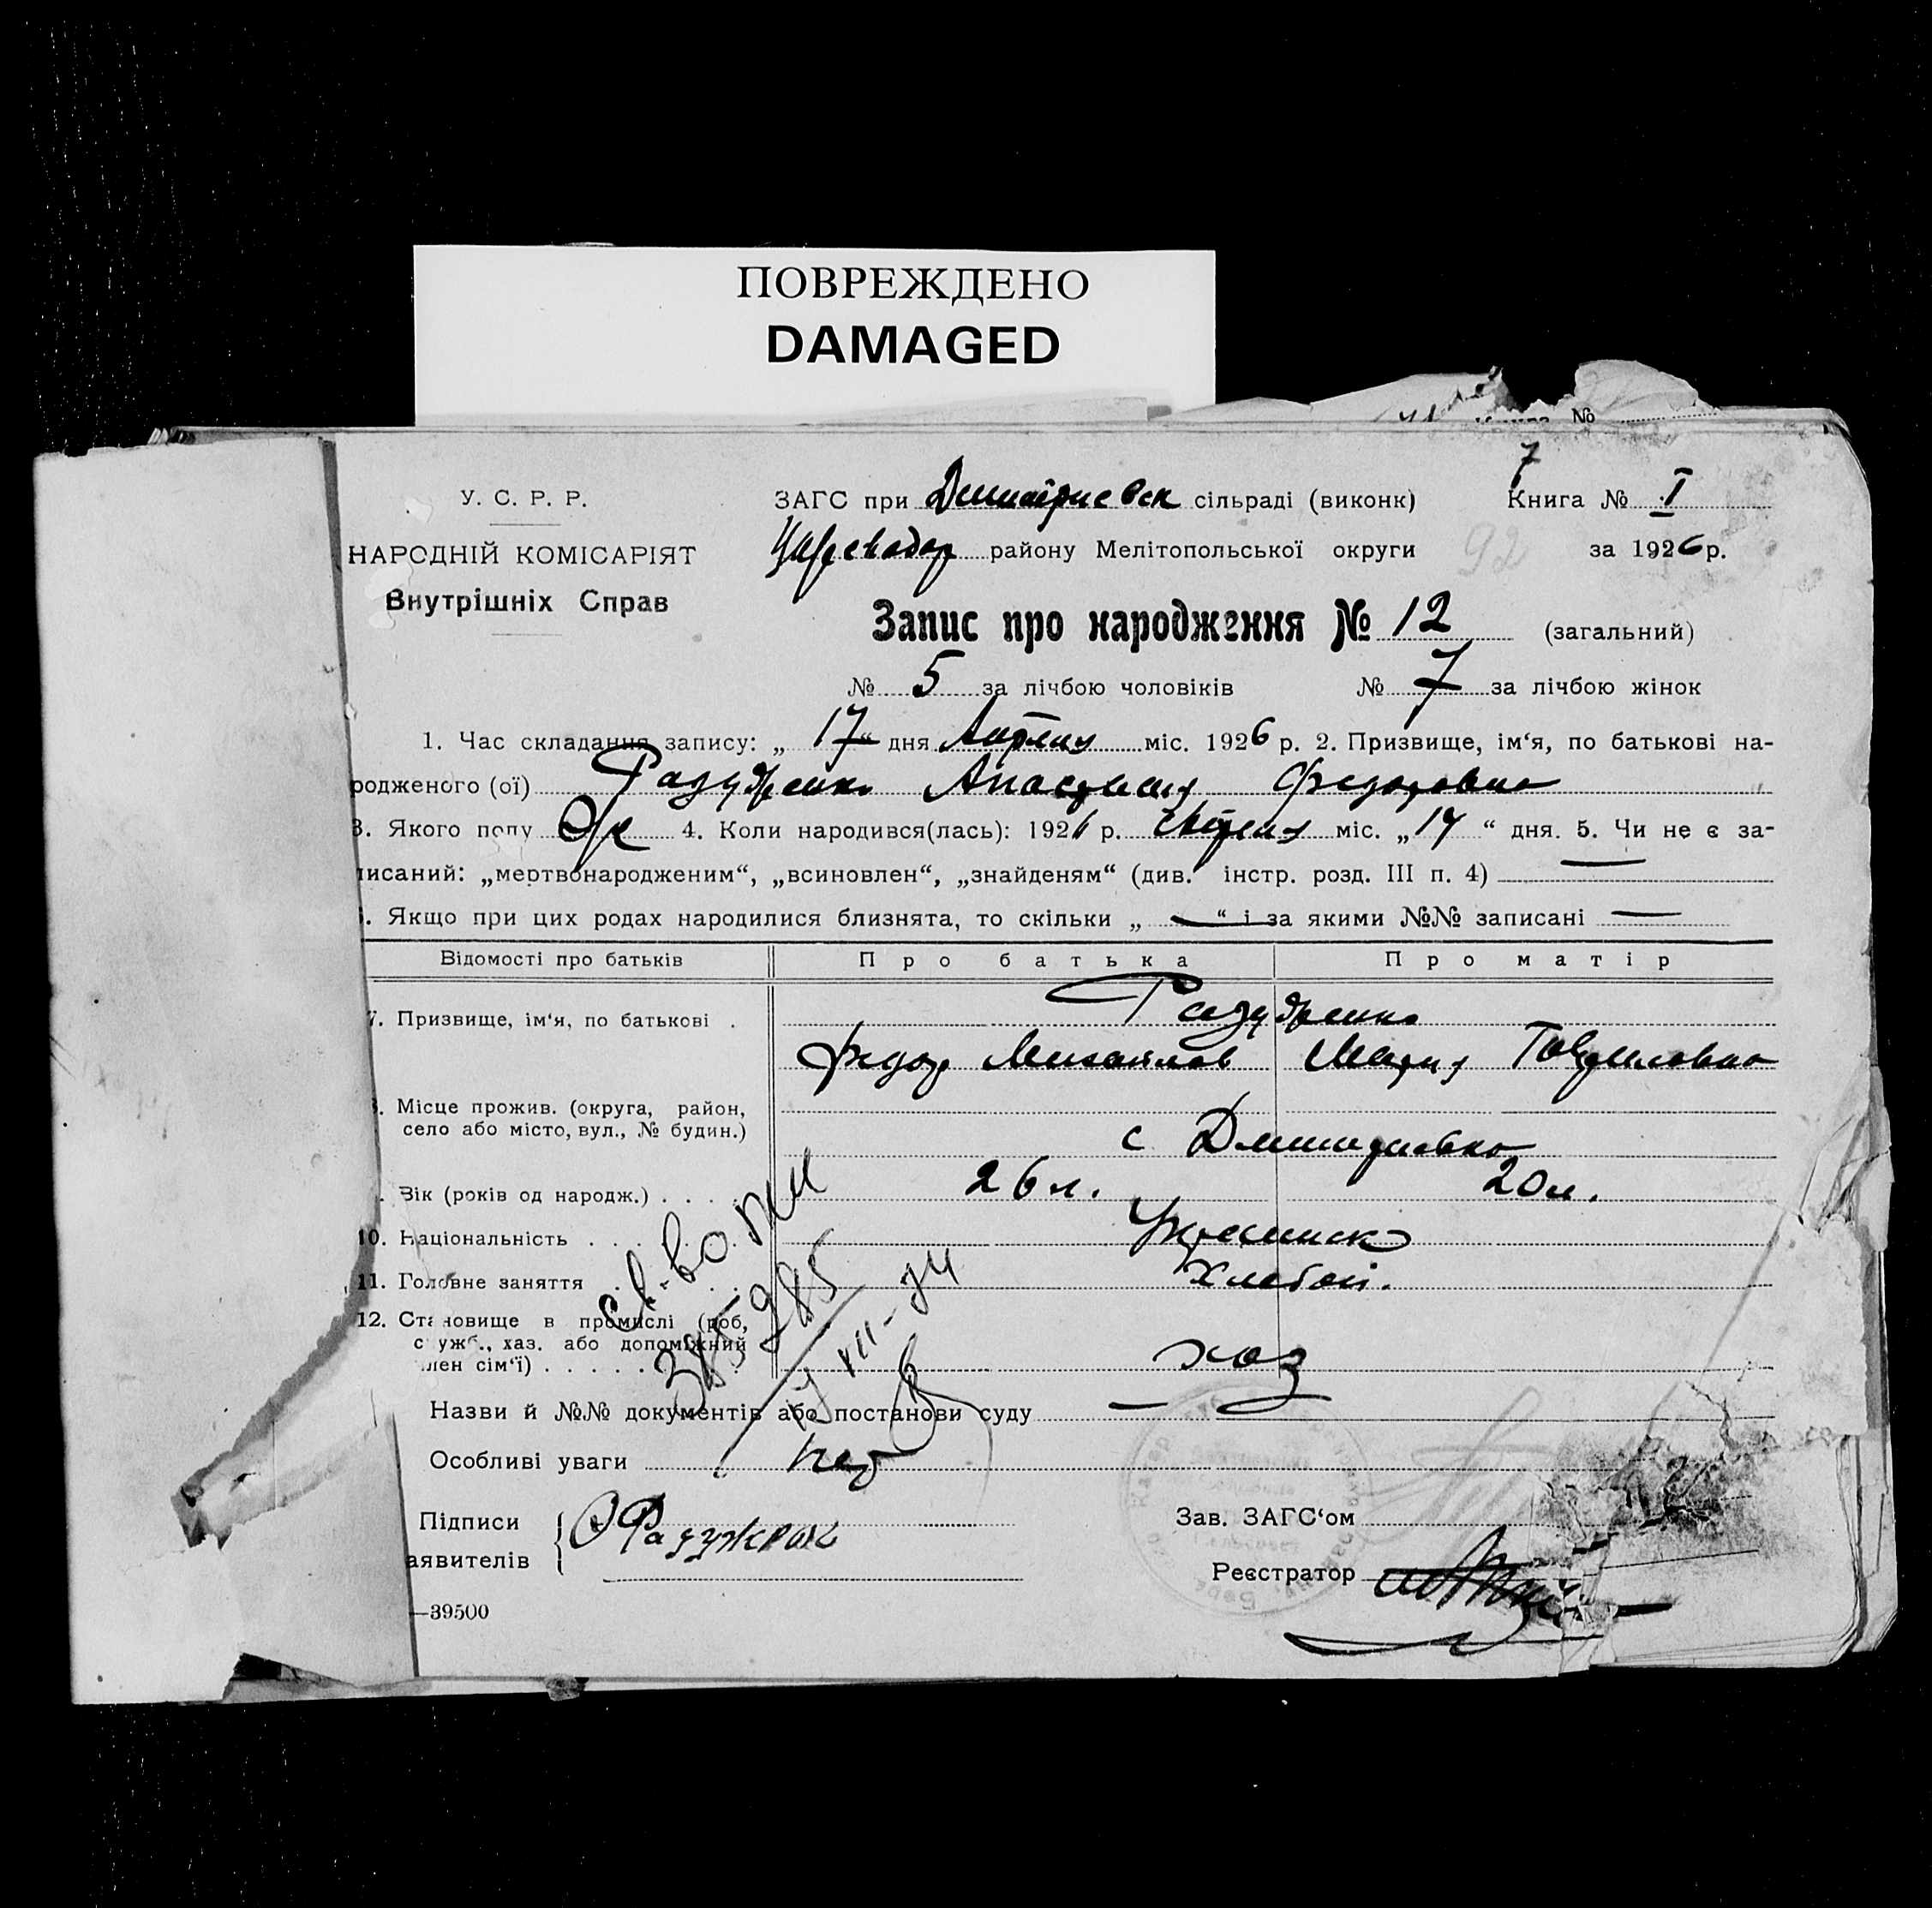 ПОВРЕЖДЕНО
DAMAGED
№
У. С. Р. Р.
НАРОДНІЙ КОМІСАРІЯТ
Внутрішніх Справ
ЗАГС при Дмитриевск сільраді (виконк)
района Мелітопольської округи
7
Книга № I
92
за 1926 р.
Запис про народження № 12 (загальний)
№ 5 за лічбою чоловіків № 7 за лічбою жінок
1. Час складання запису: „ 17 “ дня Апреля міс. 1926 р. 2. Призвище, ім‘я, по батькові на-
родженого (ої) Анастасия Федоровна
3. Якого полу 4. Коли народився(лась): 1926 р. Апреля міс. „ 14 “ дня. 5. Чи не є за-
писаний: „мертвонародженим“, „всиновлен“, „знайденям“ (див. інстр. розд. III п. 4) —
. Якщо при цих родах народилися близнята, то скільки „ — “ і за якими №№ записані —
Відомості про батьків Про батька Про матір
7. Призвище, ім‘я, по батькові .
Федор Михайлов Мария Гавриловна
. Місце прожив. (округа, район,
село або місто, вул., № будин.)
с Дмитриевка
. Вік (років од народж.) . . . 26 л. 20 л.
10. Національність . . . . . Украинск
11. Головне заняття . . . . Хлебоп.
12. Становище в промислі (роб,
служб., хаз. або допоміжний
член сім‘ї) . . . . . хоз
285
VIII-74
Назви й №№ документів або постанови суду —
Особливі уваги нет
Підписи
аявителів
Зав. ЗАГС‘ом
Реєстратор
—39500